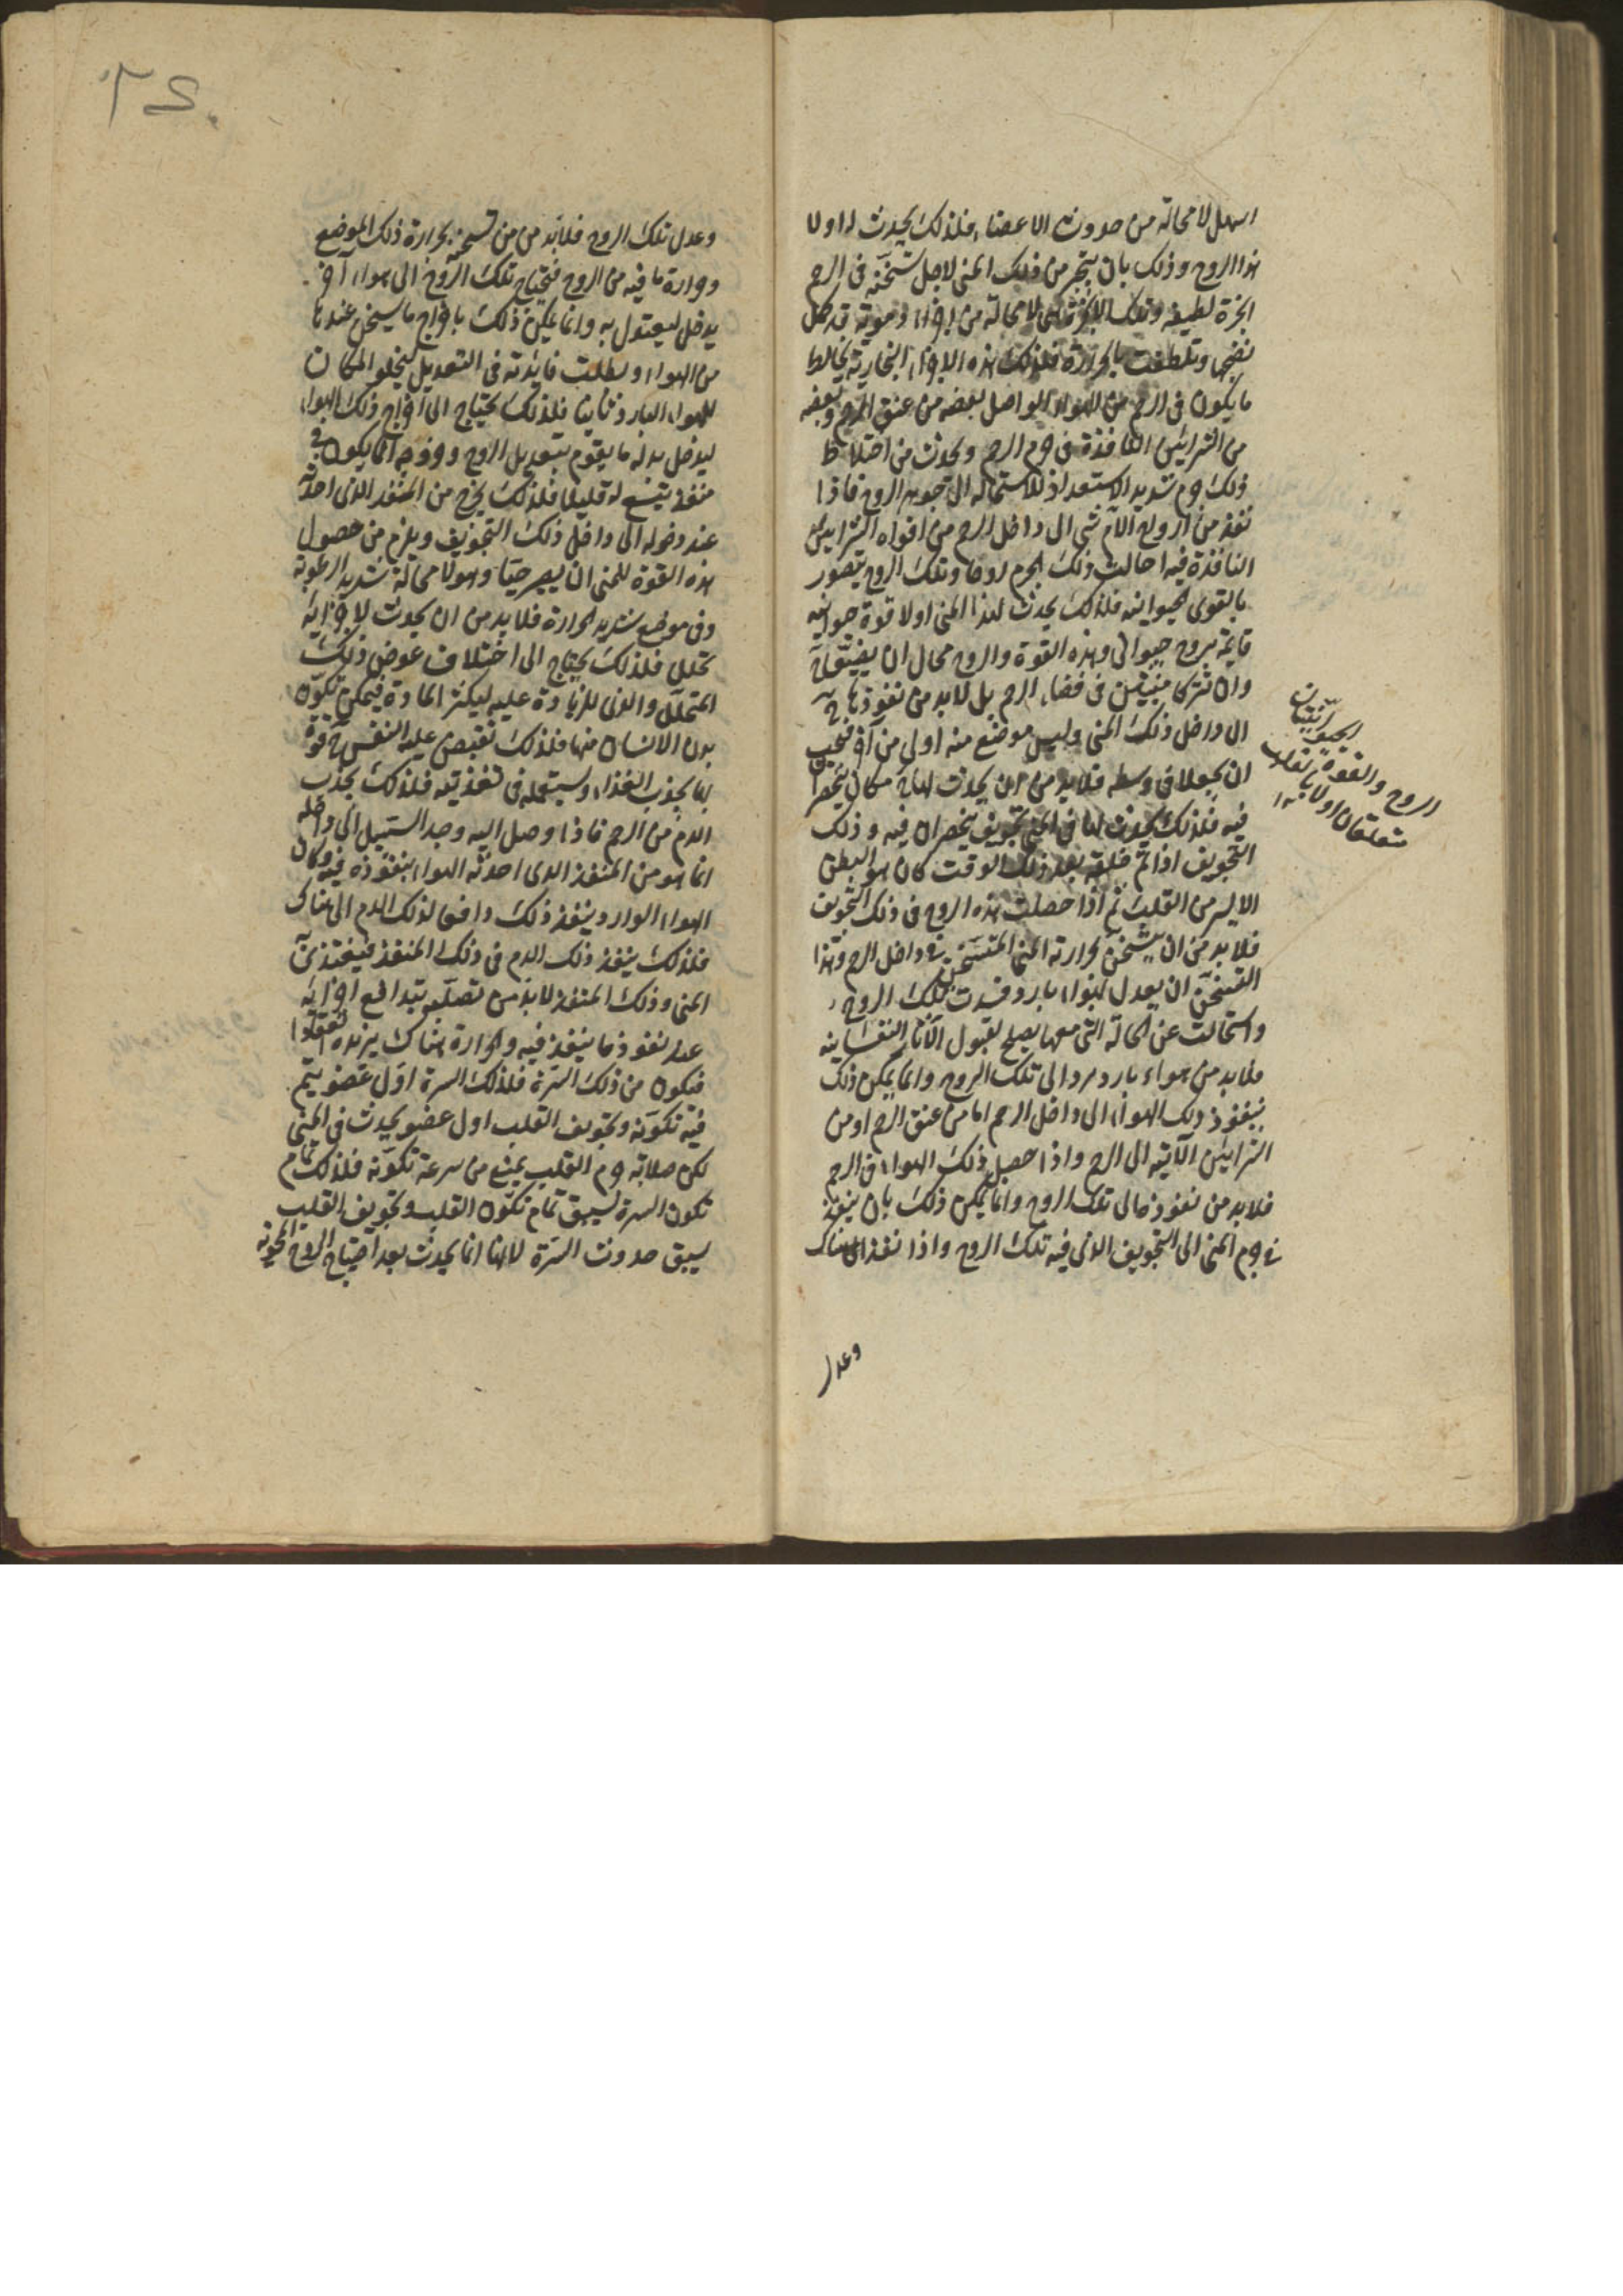 اسهل لا محالة من حدوث الاعضاء فلذلك يحدث اولا
هذا الروح وذلك بان يتبخر من ذلك المنى لاجل تسخنه فى الرحم
ابخرة لطيفة وتلك الابخرة لا محالة من اجزاء دموية قد كمل
نضجها وتلطفت بالحرارة فلذلك هذه الاجزاء البخارية يخالط
ما يكون فى الرحم من الهواء الواصل بعضه من عنق الرحم وبعضه
من الشرايين النافذة فى جرم الرحم ويحدث من اختلاط
ذلك جرم شديد الاستعداد للاستحالة الى جوهر الروح فاذا
نفذ من ارواح الام شى الى داخل الرحم من افواه الشرايين
النافذة فيه احالت ذلك الجرم روحا وتلك الروح يتصور
بالقوى الحيوانية فلذلك يحدث لهذا المنى اولا قوة حيوانية
قايمة بروح حيوانى وهذه القوة والروح محال ان يبقيا
وان تتركا منبثين فى فضاء الرحم بل لابد من نفوذهما
الى داخل ذلك المنى وليس موضع منه اولى من آخر فيجب
ان يجعلا فى وسطه فلابد من ان يحدث لهما مكان ينحصرا
فيه فلذلك يحدث لهما فى المنى تجويف ينحصران فيه وذلك
التجويف اذا تم خلقه بعد ذلك الوقت كان هو البطن
الايسر من القلب ثم اذا حصلت هذه الروح فى ذلك التجويف
فلابد من ان يتسخن بحرارة المنى المتسخن فى داخل الرحم وهذا
التسخن ان يعدل بهواء بارد فسدت تلك الروح
واستحالت عن الحالة التى معها يصلح لقبول الآثار النفسانية
فلابد من هواء بارد يرد الى تلك الروح وانما يمكن ذلك
بنفوذ ذلك الهواء الى داخل الرحم اما من عنق الرحم او من
الشرايين الآتية الى الرحم واذا حصل ذلك الهواء فى الرحم
فلابد من نفوذه الى تلك الروح وانما يمكن ذلك بان ينفذ
فى جرم المنى الى التجويف الذى فيه تلك الروح واذا نفذ الى هناك
وعدل
الروح والقوة الحيوانيتان
متعلقان اولا بالقلب
وعدل تلك الروح فلابد من من تسخنه بحرارة ذلك الموضع
وحرارة ما فيه من الروح فتحتاج تلك الروح الى هواء آخر
يدخل ليعتدل به وانما يمكن ذلك باخراج ما يسخن عندها
من الهواء وبطلت فايدته فى التعديل ليخلو المكان
للهواء البارد ثانيا فلذلك يحتاج الى اخراج ذلك الهواء
ليدخل بدله ما يقوم بتعديل الروح وخروجه انما يكون فى
منفذ يتسع له قليلا فلذلك يخرج من المنفذ الذى احدثه
عند دخوله الى داخل ذلك التجويف ويلزم من حصول
هذه القوة للمنى ان يصير حيا وهو لا محالة شديد الرطوبة
وفى موضع شديد الحرارة فلابد من ان يحدث لاجزايه
تحلل فلذلك يحتاج الى اختلاف عوض ذلك
المتحلل والذى للزيادة عليه ليكثر المادة فيمكن تكون
بدن الانسان منها فلذلك تفيض عليه النفس قوة
بها يجذب الغذاء ويستعمله فى تغذيته فلذلك يجذب
الدم من الرحم فاذا وصل اليه وجد السبيل الى داخله
انما هو من المنفذ الذى احدثه الهواء بنفوذه فيه وكان
الهواء الوارد ينفذ ذلك دافعا لذلك الدم الى هناك
فلذلك ينفذ ذلك الدم فى ذلك المنفذ فيغتذى
المنى وذلك المنفذ لابد من تصلبه بتدافع اجزايه
عند نفوذ ما ينفذ فيه والحرارة هناك يزيده انعقادا
فتكون من ذلك السرة فلذلك السرة اول عضو يتم
فيه تكونه وتجويف القلب اول عضو يحدث فى المنى
لكن صلابة جرم القلب يمنع من سرعة تكونه فلذلك تمام
تكون السرة يسبق تمام تكون القلب وتجويف القلب
يسبق حدوث السرة لانها انما يحدث بعد احتياج الروح